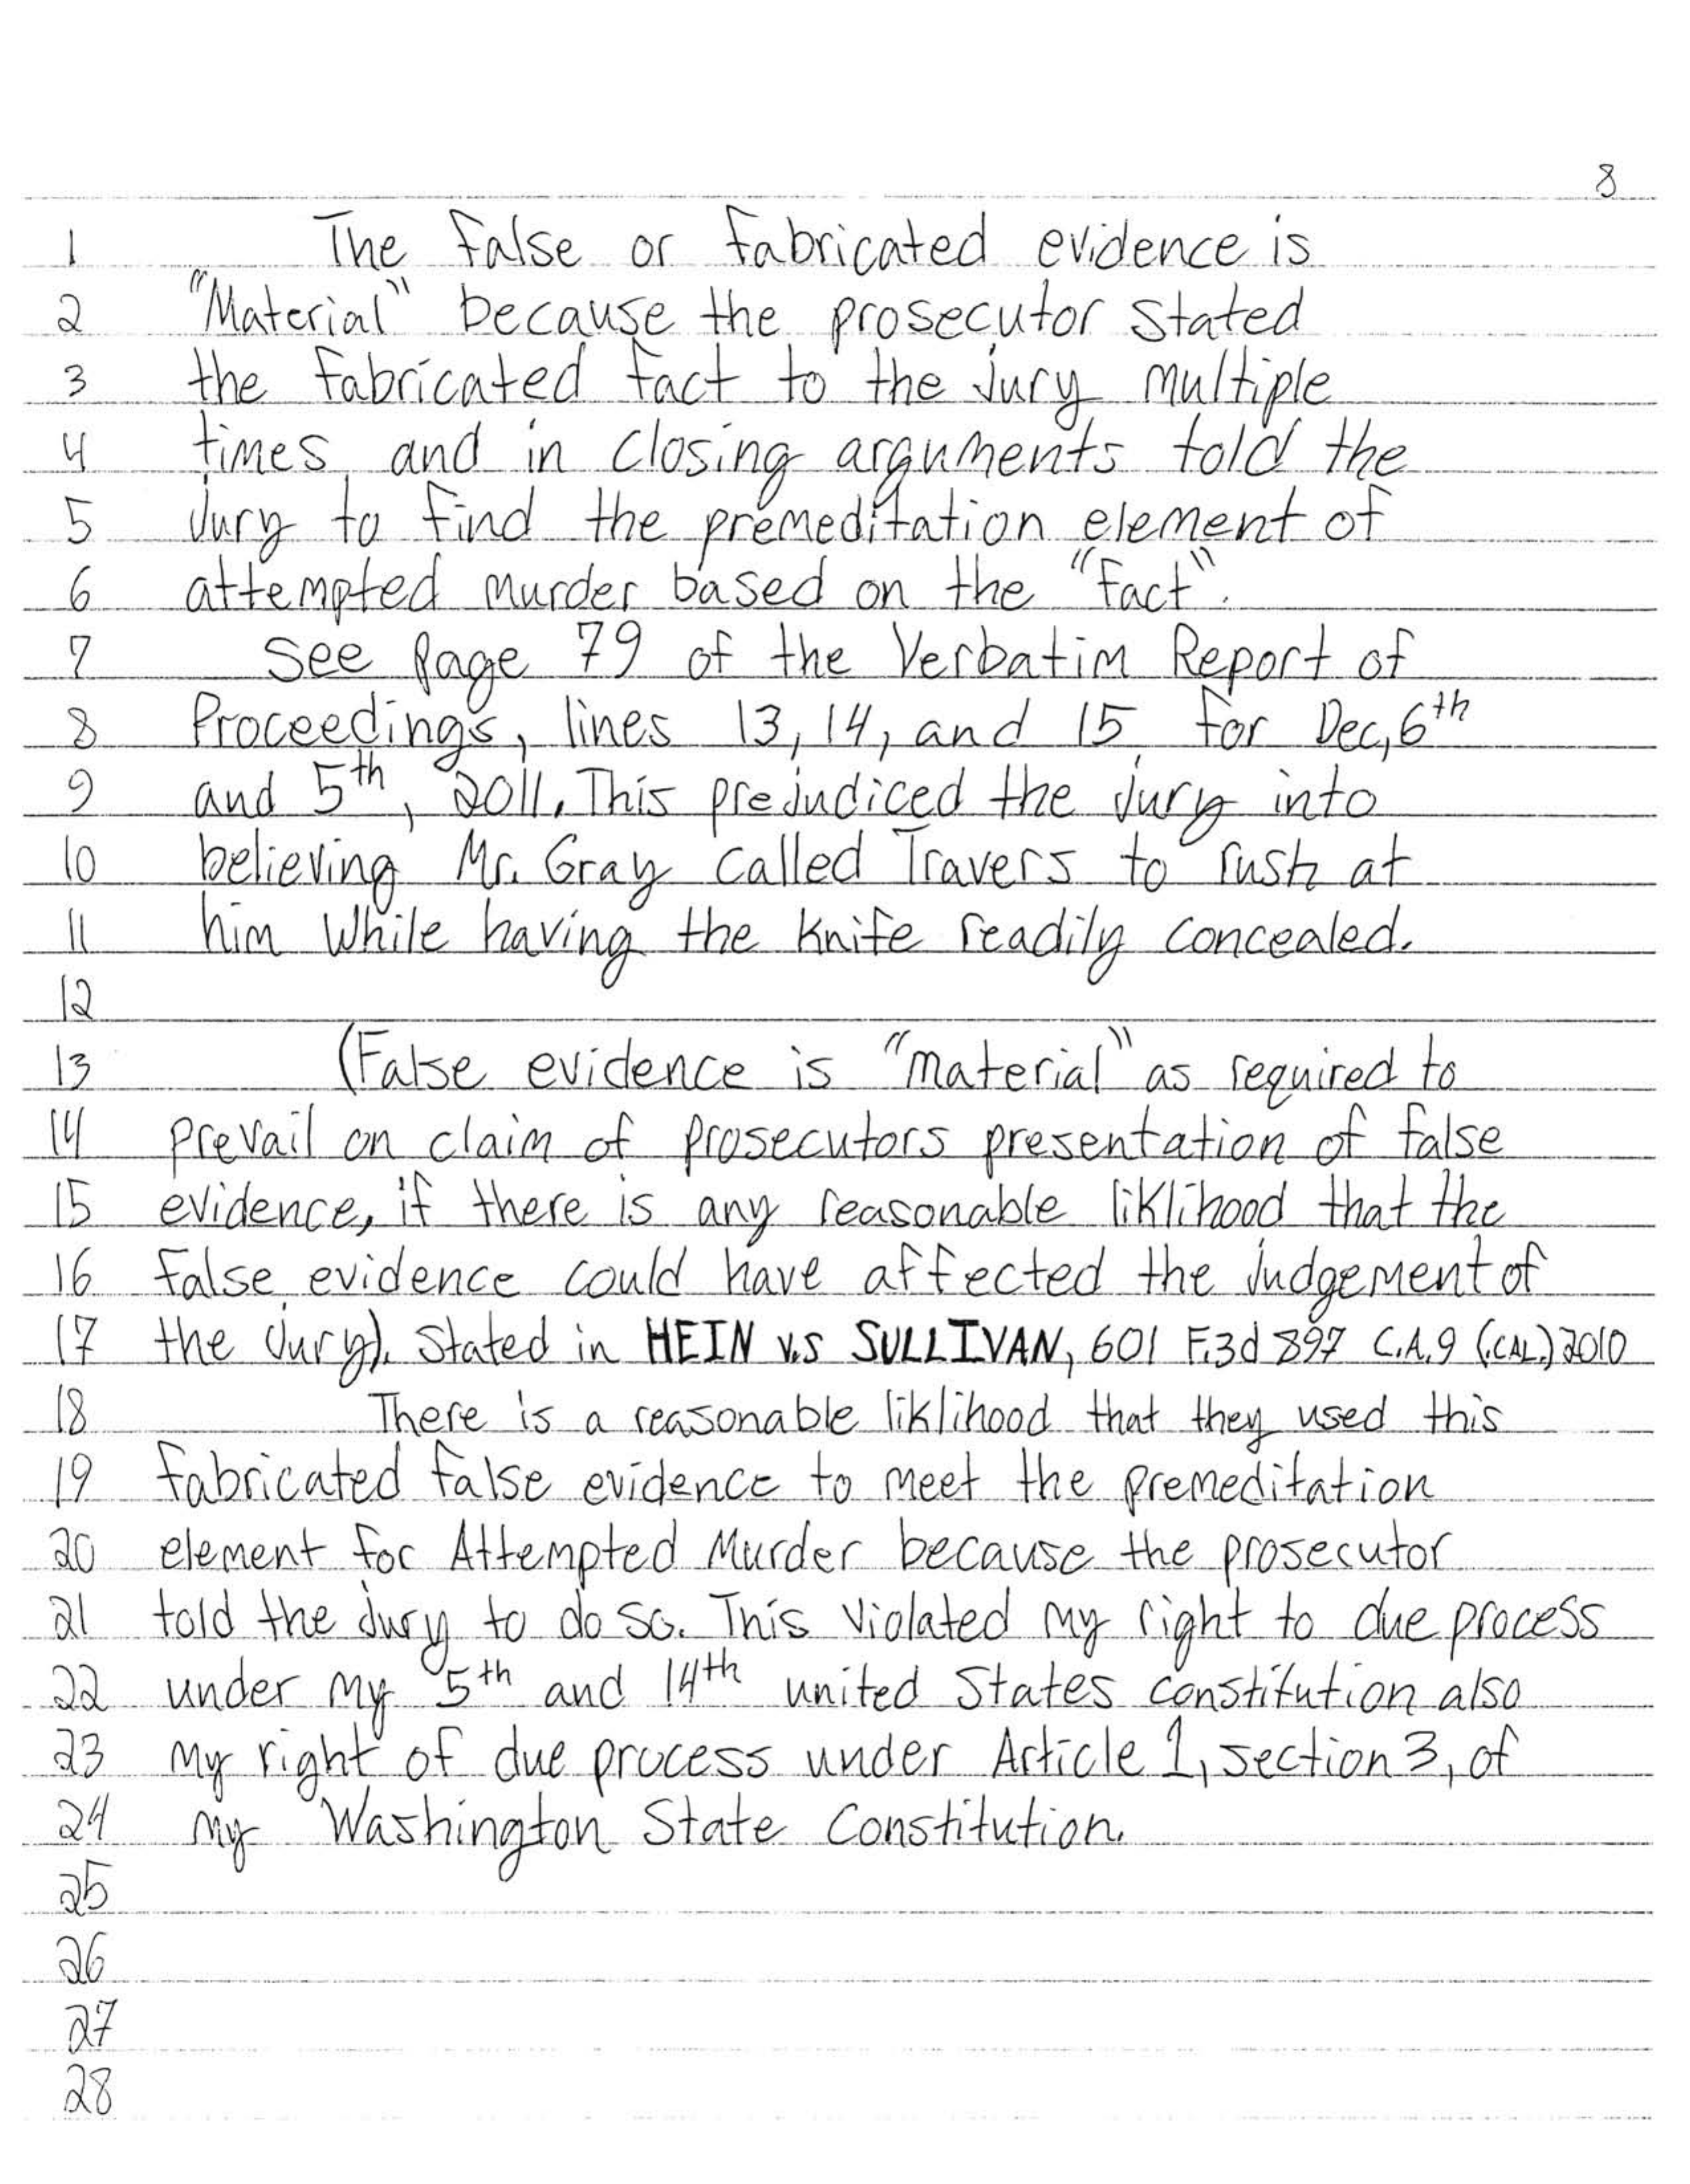 8
1 The false or fabricated evidence is
2 "Material" because the prosecutor stated
3 the fabricated fact to the jury multiple
4 times, and in closing arguments told the
5 jury to find the premeditation element of
6 attempted murder based on the "fact".
7 See page 79 of the Verbatim Report of
8 Proceedings, lines 13, 14, and 15 for Dec, 6th
9 and 5th, 2011. This prejudiced the jury into
10 believing Mr. Gray called Travers to rush at
11 him while having the knife readily concealed.
12
13 (False evidence is "material" as required to
14 prevail on claim of prosecutors presentation of false
15 evidence, if there is any reasonable liklihood that the
16 false evidence could have affected the judgement of
17 the jury). Stated in HEIN v.s SULLIVAN, 601 F.3d 897 C.A.9 (.CAL.) 2010
18 There is a reasonable liklihood that they used this
19 fabricated false evidence to meet the premeditation
20 element for Attempted Murder because the prosecutor
21 told the jury to do so. This violated my right to due process
22 under my 5th and 14th united States constitution also
23 my right of due process under Article 1, section 3, of
24 my Washington State Constitution.
25
26
27
28